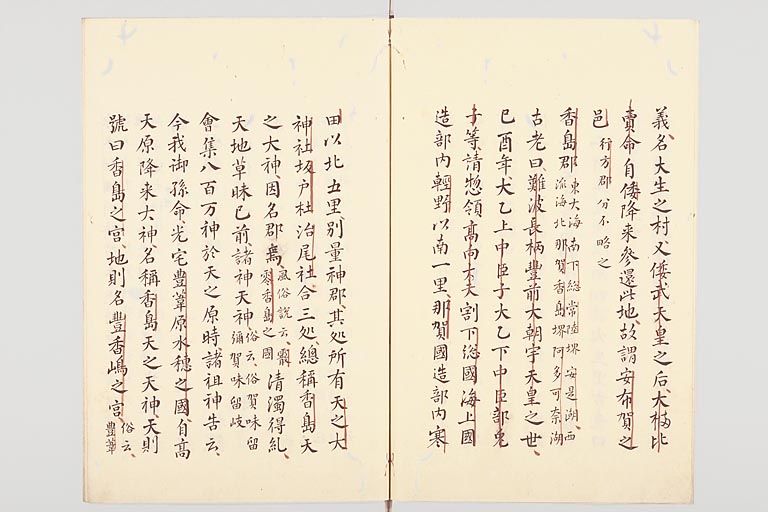 義名大生之村又倭武天皇之后大橘比
賣命自倭降来参還此地故謂安布賀之
邑 行方郡分不略之
香島郡 東大海南下総常陸堺安是湖西
流海北那賀香島堺阿多可奈湖
古老曰難波長柄豊前大朝宇天皇之世
己酉年大乙上中臣子大乙下中臣部兎
子等請惣領高向大夫割下総國海上國
造部内輕野以南一里那賀國造部内寒
田以北五里別量神郡其処所有天之大
神社坂戸社沼尾社合三処総稱香島天
之大神因名郡焉 風俗説云霰
零香島之國 清濁得糺
天地草昧已前諸神天神 俗云俗賀味留
彌賀味留岐
會集八百万神於天之原時諸祖神告云
今我御孫命光宅豊葦原水穂之國自高
天原降来大神名稱香島天之大神天則
號曰香島之宮地則名豊香嶋之宮 俗云
豊葦